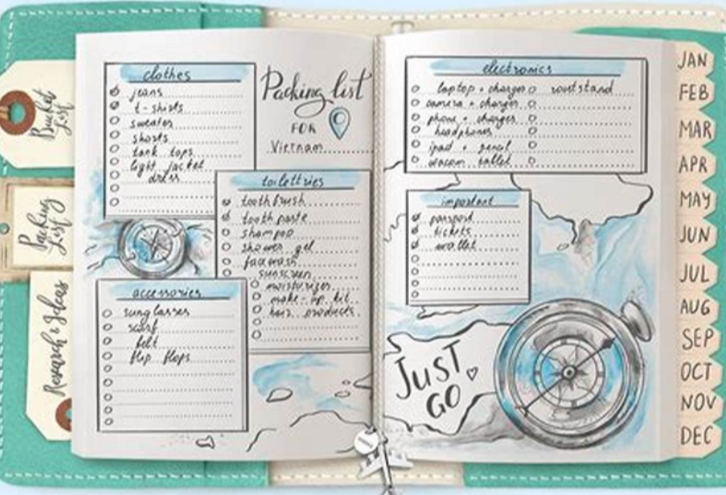 Bucket
List
Packing
List
Research & Ideas
clothes
jeans
t-shirts
sweater
shorts
tank tops
light jacket
dress
Packing list
FOR
Vietnam
toilettries
tooth brush
tooth paste
shampoo
shower gel
facewash
sunscreen
moisturizer
make-up kit
hair products
accessories
sunglasses
scarf
belt
flip flops
electronics
laptop + charger
camera + charger
phone + charger
headphones
ipad + pencil
wacom tablet
important
passport
tickets
wallet
JUST
GO
JAN
FEB
MAR
APR
MAY
JUN
JUL
AUG
SEP
OCT
NOV
DEC